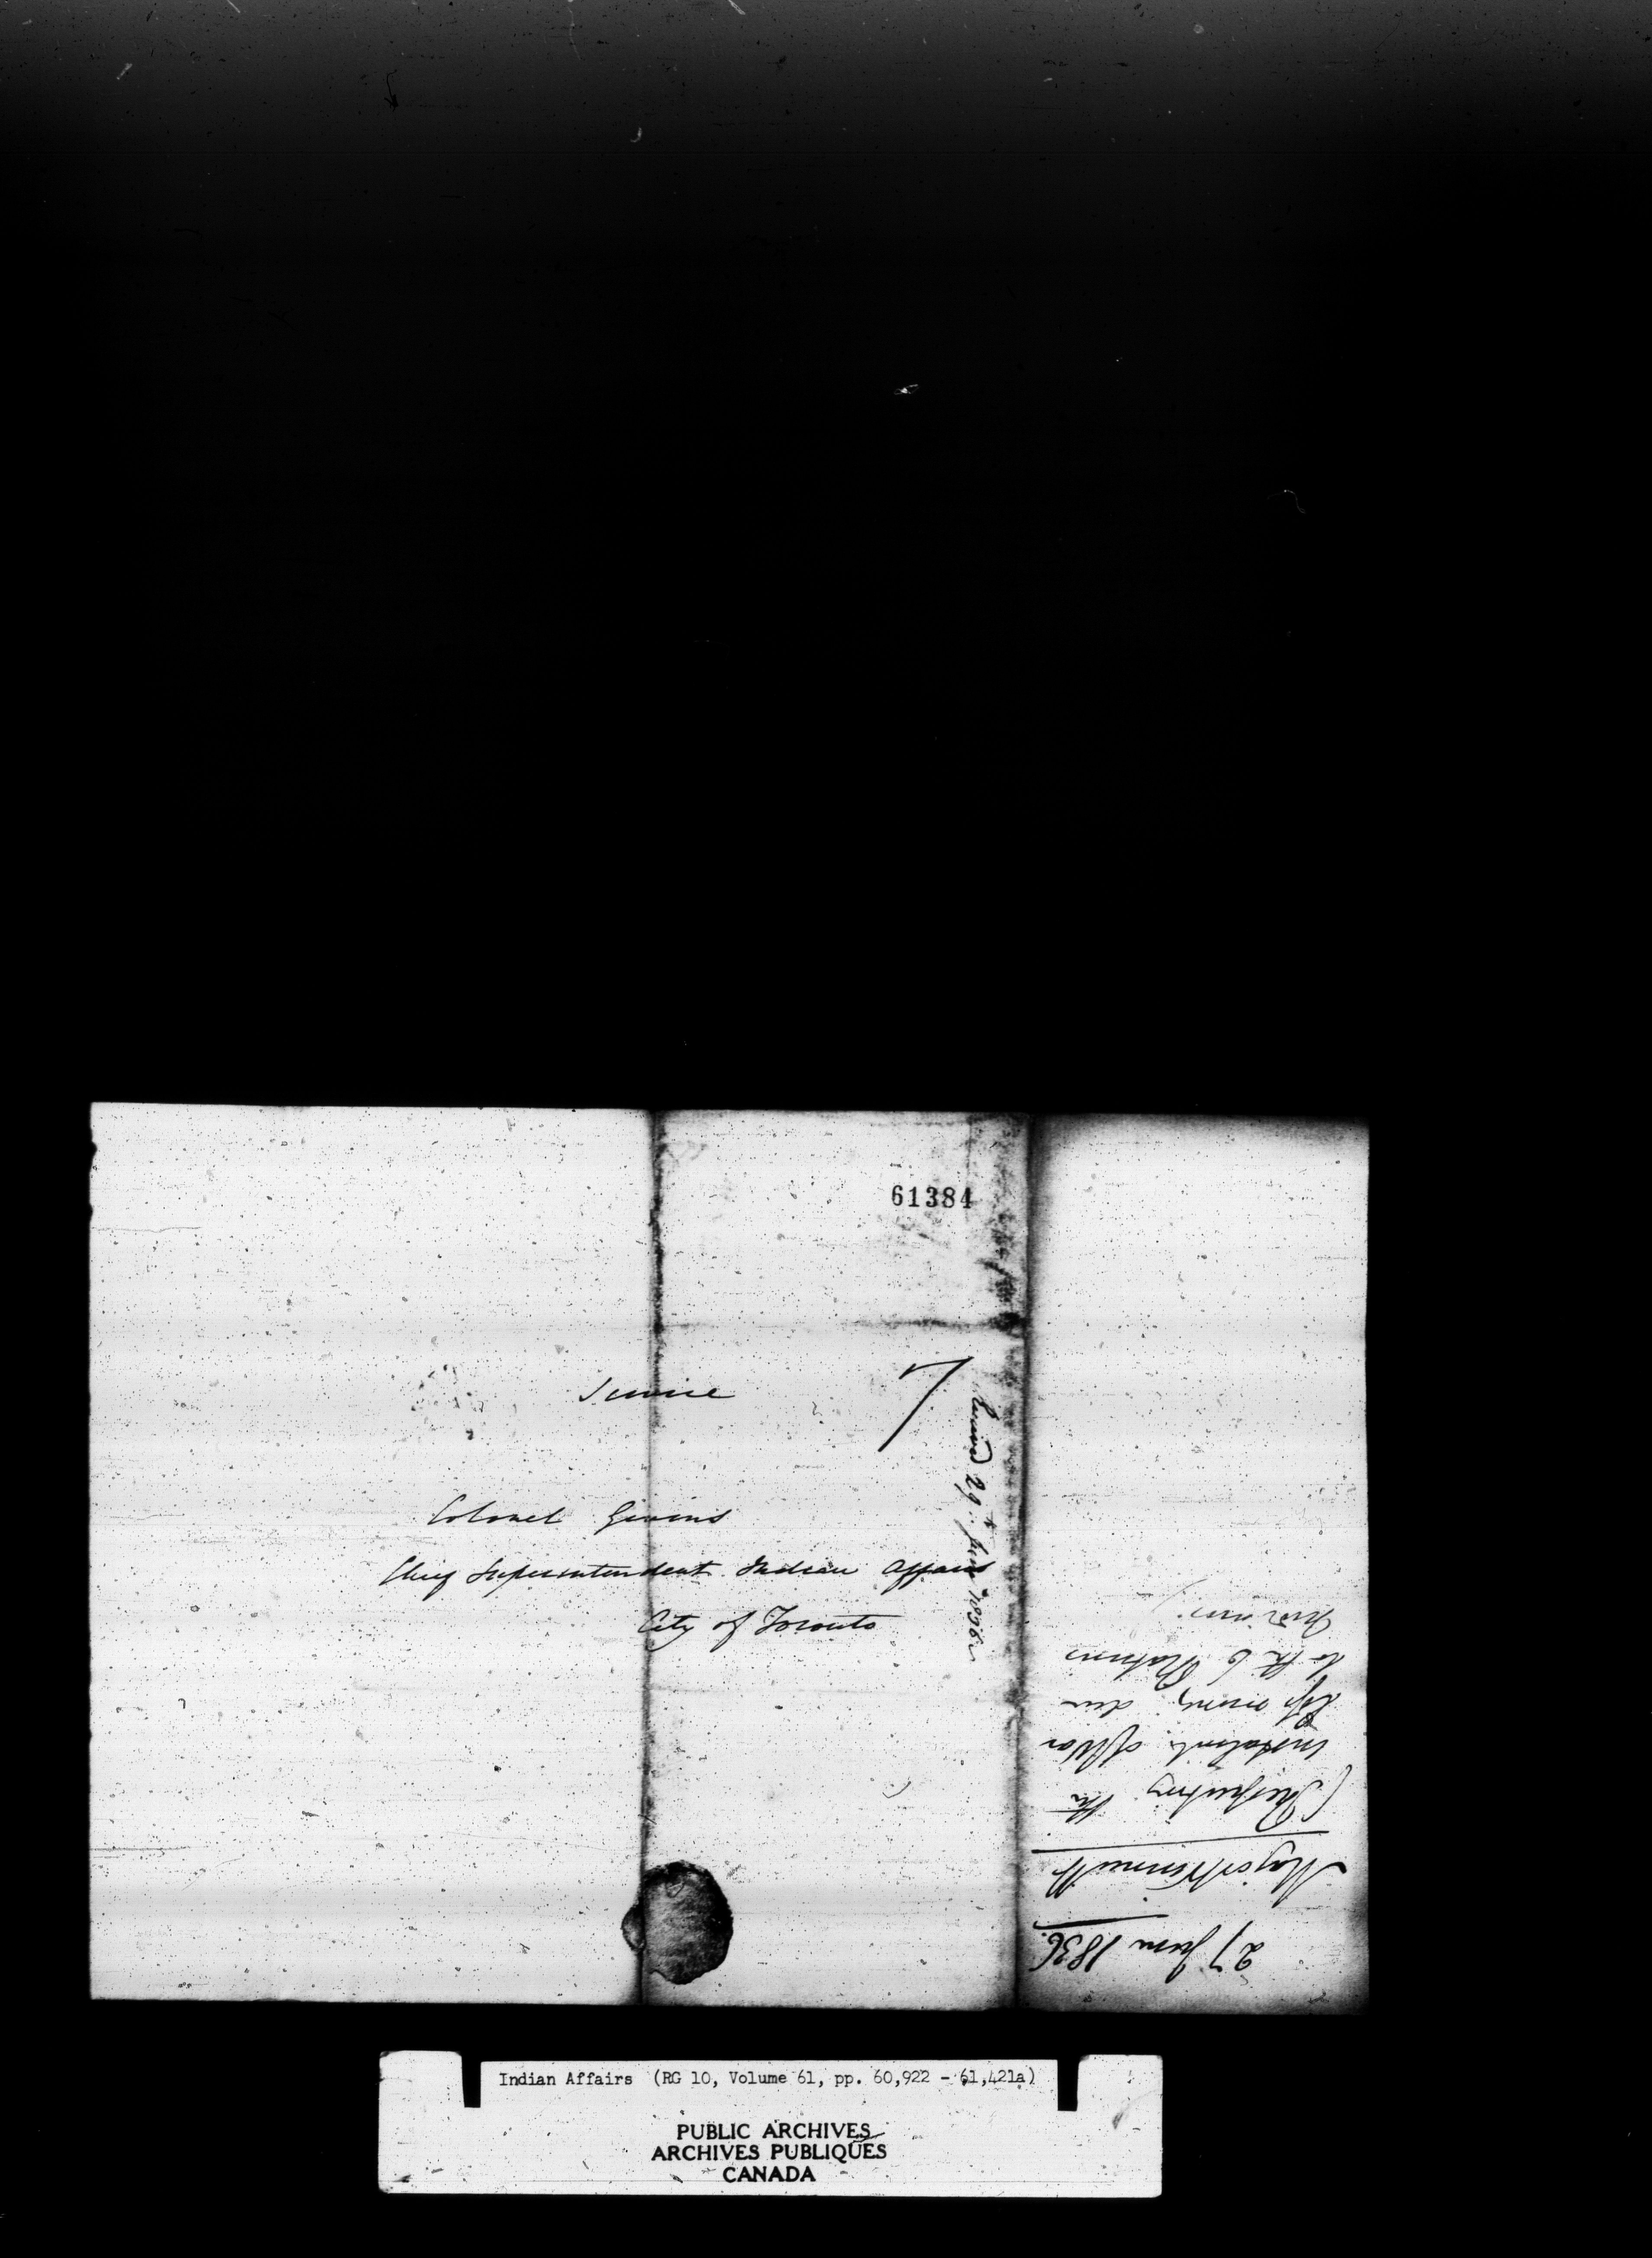 61384
Service
Colonel Givins
Chief Superintendent Indian Affairs
City of Toronto
29th June 1836
27 June 1836.
Major Winniett
(Respecting the
Instalmt. of
money due
to the 6 Nations
Indians.)
Indian Affairs (RG 10, Volume 61, pp. 60,922 - 61,421a)
PUBLIC ARCHIVES
ARCHIVES PUBLIQUES
CANADA